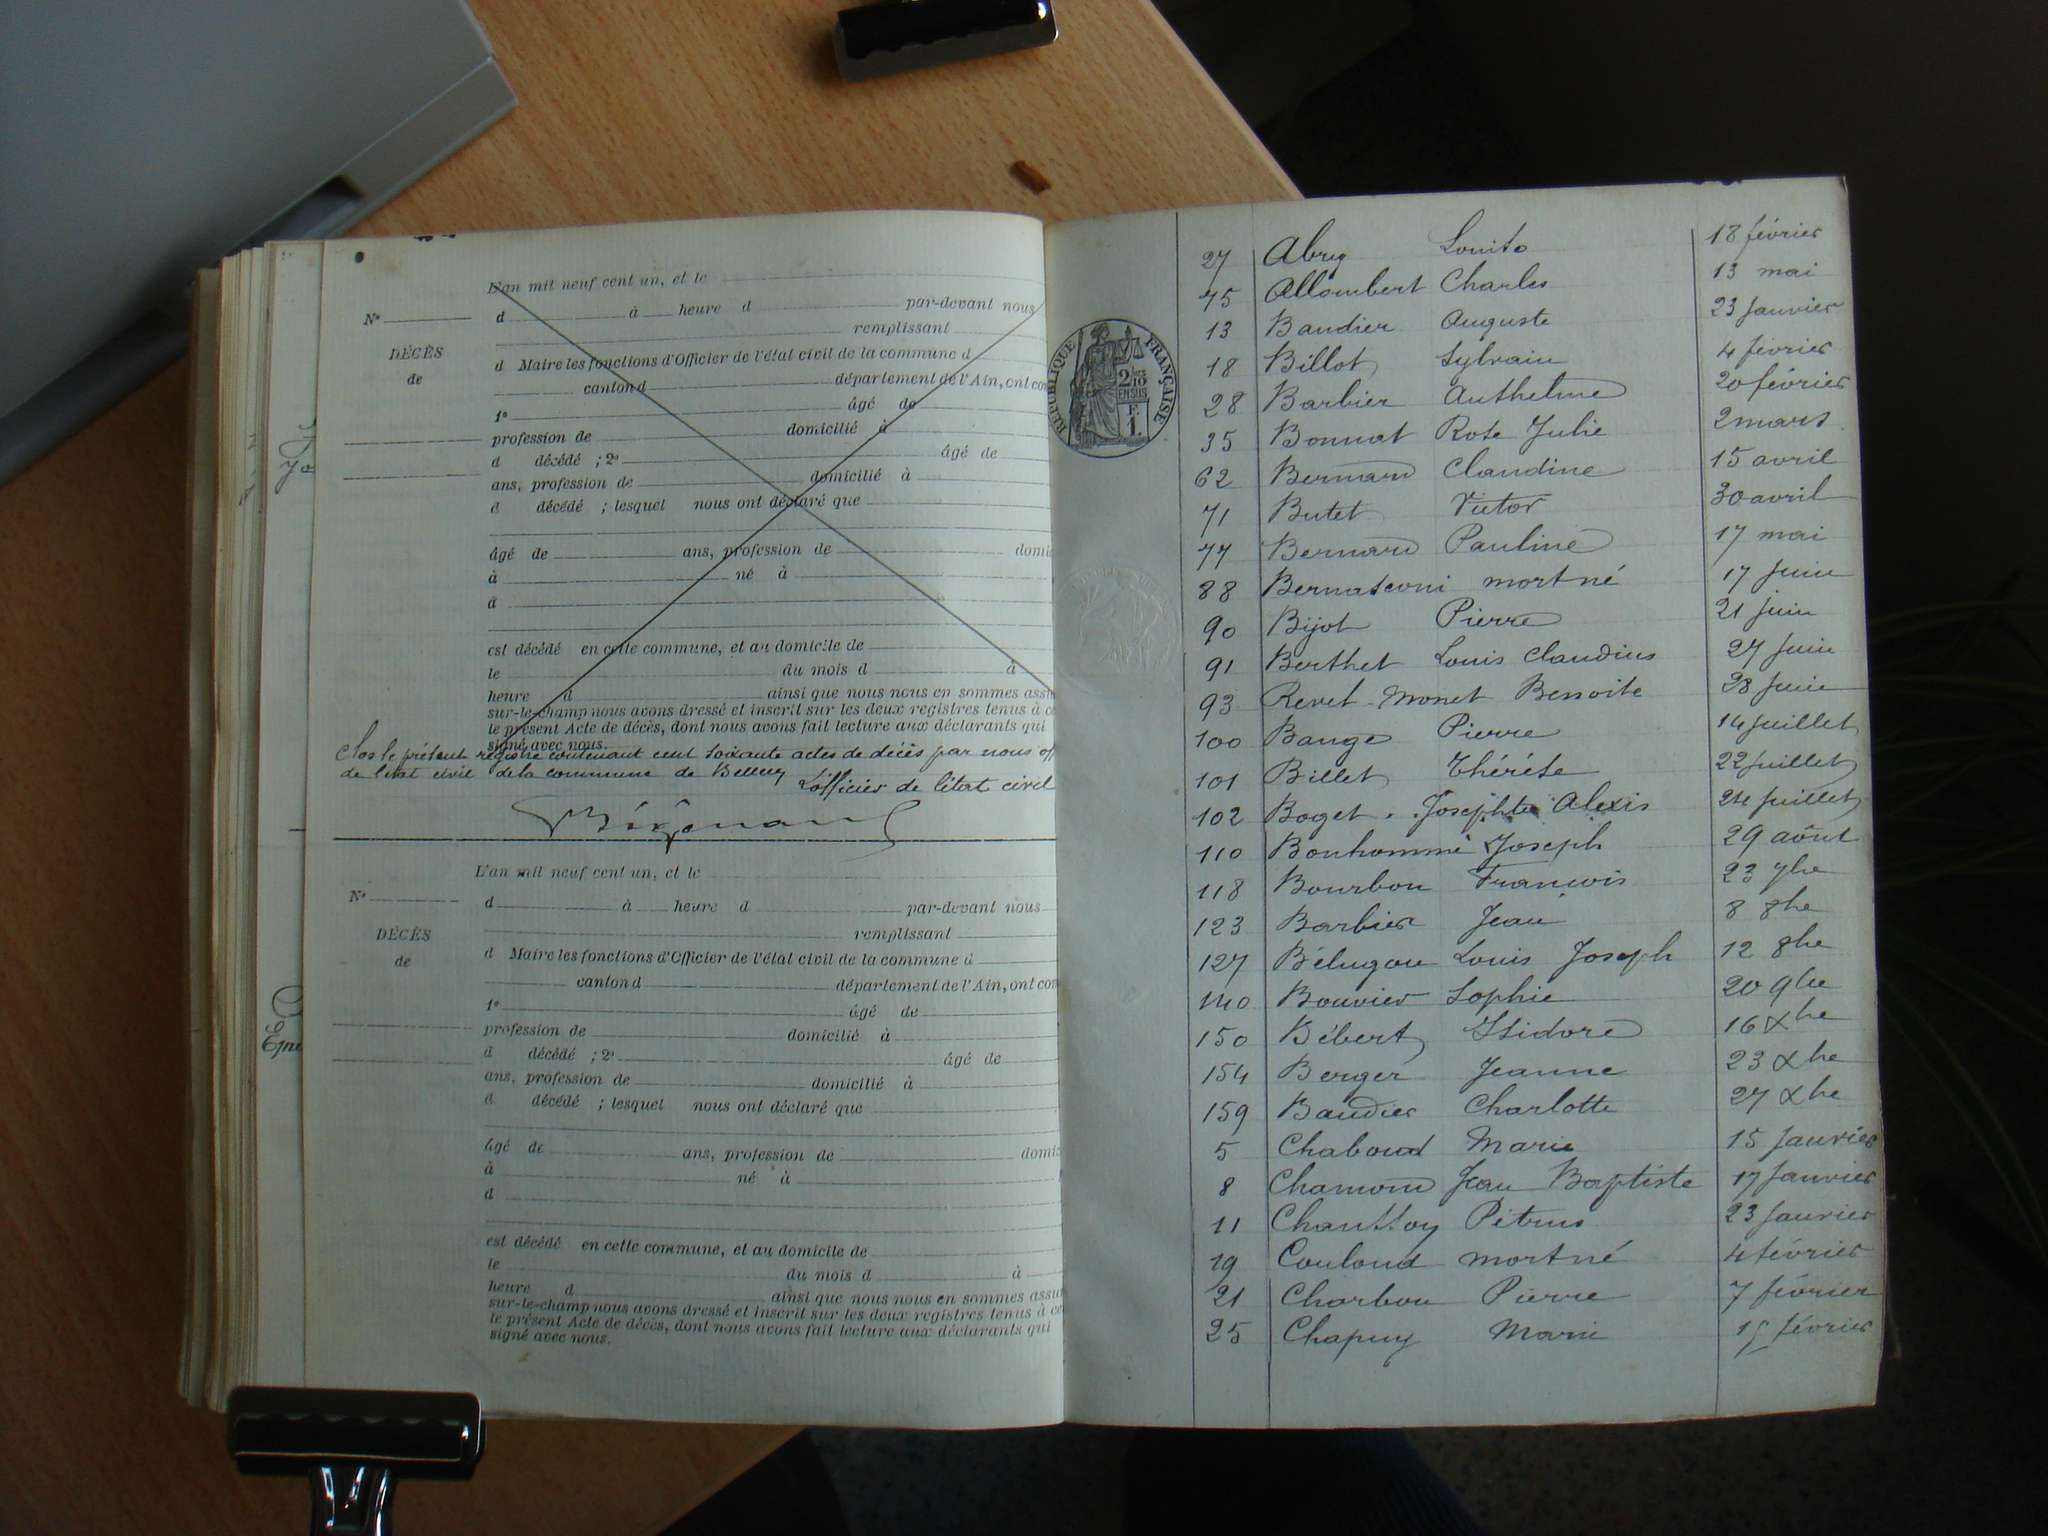 L'an mil neuf cent un, et le
N°
d à heure d par-devant nous
remplissant
DÉCÈS
de
d Maire les fonctions d'Officier de l'état civil de la commune d
canton d département de l'Ain, ont con
1° âgé de
profession de domicilié à
d décédé ; 2° âgé de
ans, profession de domicilié à
d décédé ; lesquel nous ont déclaré que
âgé de ans, profession de domic
à né à
d
est décédé en cette commune, et au domicile de
le du mois d à
heure d ainsi que nous nous en sommes assu
sur-le-champ nous avons dressé et inscrit sur les deux registres tenus à ce
le présent Acte de décès, dont nous avons fait lecture aux déclarants qui
signé avec nous.
Clos le présent registre contenant cent soixante actes de décès par nous off
de l'état civil de la commune de Belley
L'officier de l'état civil
L'an mil neuf cent un, et le
N°
d à heure d par-devant nous
remplissant
DÉCÈS
de
d Maire les fonctions d'Officier de l'état civil de la commune d
canton d département de l'Ain, ont con
1° âgé de
profession de domicilié à
d décédé ; 2° âgé de
ans, profession de domicilié à
d décédé ; lesquel nous ont déclaré que
âgé de ans, profession de domic
à né à
d
est décédé en cette commune, et au domicile de
le du mois d à
heure d ainsi que nous nous en sommes assu
sur-le-champ nous avons dressé et inscrit sur les deux registres tenus à ce
le présent Acte de décès, dont nous avons fait lecture aux déclarants qui
signé avec nous.
RÉPUBLIQUE FRANÇAISE
2/10
EN SUS
F.
1.
27 Abry 18 février
75 Allombert Charles 13 mai
13 Baudier Auguste 23 Janvier
18 Billot Sylvain 4 février
28 Barbier Anthelme 20 février
35 Bonnat Rose Julie 2 mars
62 Bernard Claudine 15 avril
71 Butet Victor 30 avril
77 Bernard Pauline 17 mai
88 Bernasconi mort né 17 Juin
90 Bijot Pierre 21 juin
91 Berthet Louis Claudius 27 Juin
93 Revet-Monet Benoite 28 Juin
100 Bauge Pierre 14 juillet
101 Billet Thérèse 22 juillet
102 Boget Alexis 24 juillet
110 Bonhomme Joseph 29 aôut
118 Bourbon François 23 7bre
123 Barbier Jean 8 8bre
127 Bélugou Louis Joseph 12 8bre
140 Bouvier Sophie 20 9bre
150 Bébert Isidore 16 Xbre
154 Berger Jeanne 23 Xbre
159 Baudier Charlotte 27 Xbre
5 Chaboud Marie 15 Janvier
8 Chamond Jean Baptiste 17 Janvier
11 Chauttoy Pétrus 23 Janvier
19 Couloud mort né 4 février
21 Charbon Pierre 7 février
25 Chapuy Marie 15 février